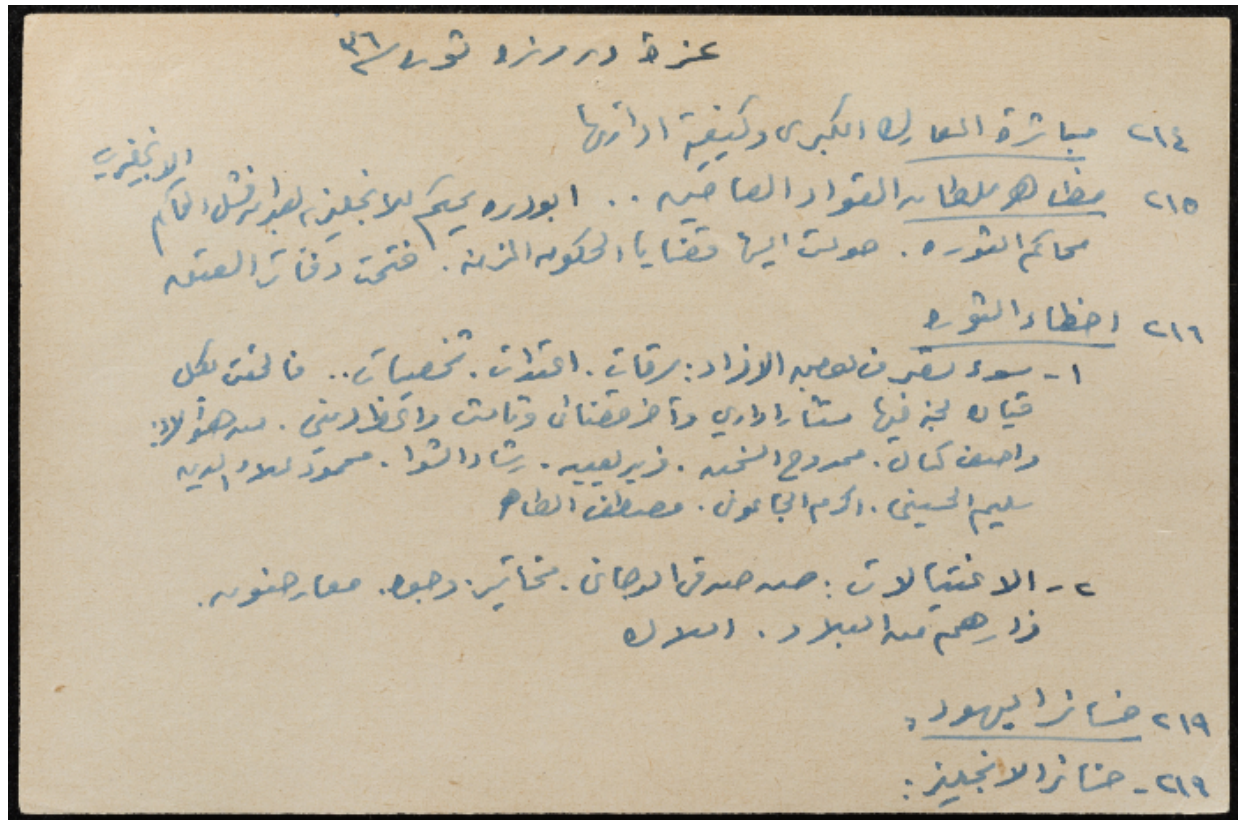 عزة دروزه ثورة ٣٦
٢١٤ مباشرة المعارك الكبرى وكيفية ادارتها
٢١٥ مظاهر سلطان القواد العامين .. ابو دره يحكم للانجليزي بعد ان فشل الحاكم الانجليزي
محاكم الثوره . حولت اليها قضايا الحكومه المزمنه . فتحت دفاتر
٢١٦ اخطاء الثوره
١ - سوء تصرف بعض الافراد : سرقات . اعتداءات . شخصيات .. فالحقت بكل
قياده لجنه فيها مستشار اداري وآخر قضائي وثالث . من هؤلاء :
واصف كمال . ممدوح السخن . فريد يعيش . رشاد الشوا . محمود علاء الدين
سليم الحسيني . اكرم الجاعوني . مصطفى الطاهر
٢ - الاغتيالات : حسن صدقي الدجاني . مخاتير . وجوه . معارضون .
فرارهم من البلاد . املاك
٢١٩ خسائر اليهود :
٢١٩ - خسائر الانجليز :